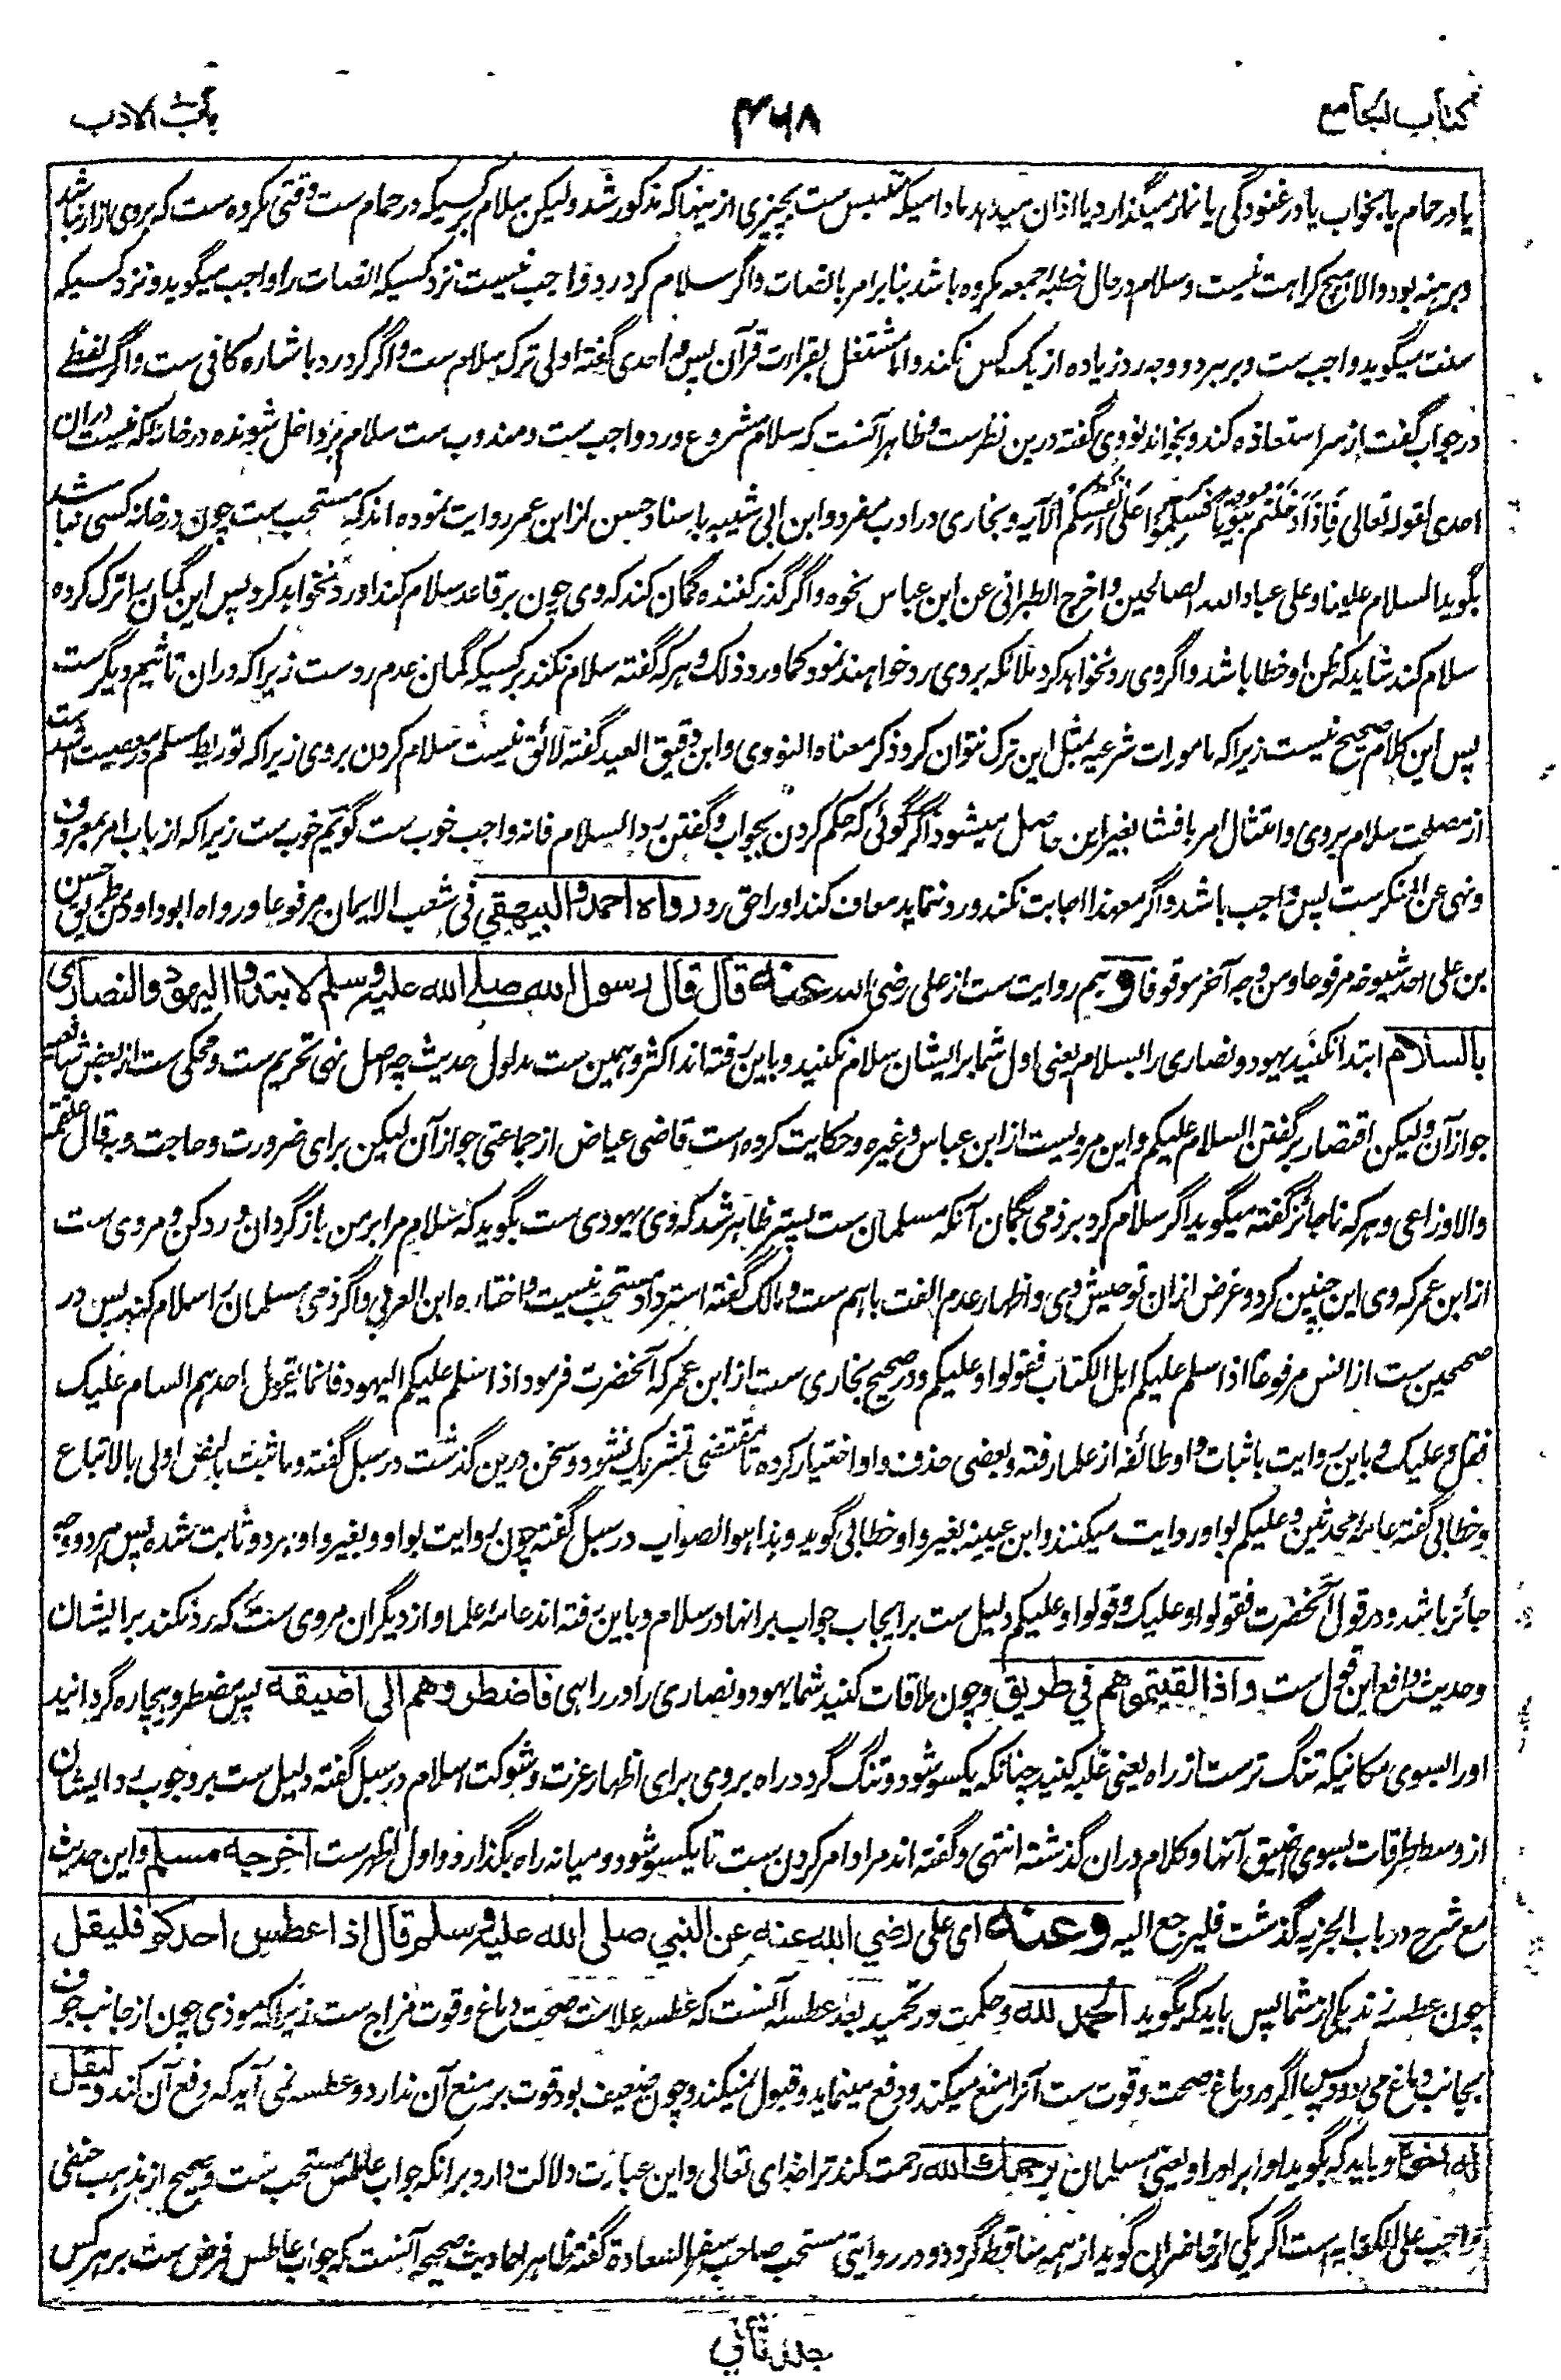 کتاب الجامع
۴۶۸
باب الادب
یا در حمام یا بخواب یا در غنودگی یا نماز میگذارد یا اذان میدهد مادامیکه متلبس ست بچیزی ازینها که مذکور شد ولیکن سلام بر کسیکه در حمام ست وقتی مکروه ست که بر وی ازار نباشد
و برهنه بود والا هیچ کراهت نیست و سلام در حال خطبه جمعه مکروه باشد بنا بر امر بانصات و اگر سلام کرد رد واجب نیست نزد کسیکه انصات را واجب میگوید و نزد کسیکه
سنت میگوید واجب ست و بر هر دو وجه رد زیاده از یک کس نکند و اما مشتغل بقراءت قرآن پس واحدی گفته اولی ترک سلام ست و اگر کرد رد باشاره کافی ست و اگر بلفظ
در جواب گفت از سر استعاذه کند و بخواند نووی گفته درین نظرست و ظاهر آنست که سلام مشروع و رد واجب ست و مندوب ست سلام مرد داخل شونده در خانه که نیست دران
احدی لقوله تعالی فَاِذَا دَخَلْتُمْ بُیُوتًا فَسَلِّمُوا عَلٰی اَنْفُسِکُمْ الآیه و بخاری در ادب مفرد و ابن ابی شیبه باسناد حسن از ابن عمر روایت نموده اند که مستحب ست چون در خانه کسی نباشد
بگوید السلام علینا و علی عباد الله الصالحین و اخرج الطبرانی عن ابن عباس نحوه و اگر گذر کننده گمان کند که وی چون بر قاعد سلام کند او رد نخواهد کرد پس این گمان را ترک کرده
سلام کند شاید که ظن او خطا باشد و اگر وی رد نخواهد کرد ملائکه بر وی رد خواهند نمود کما ورد ذلک و هر که گفته سلام نکند بر کسیکه گمان عدم رد ست زیرا که دران تاثیم دیگرست
پس این کلام صحیح نیست زیرا که مامورات شرعیه بمثل این ترک نتوان کرد ذکر معناه النووی و ابن دقیق العید گفته لائق نیست سلام کردن بر وی زیرا که توریط مسلم در معصیت اشد ست
از مصلحت سلام بر وی و امتثال امر بافشا بغیر این حاصل میشود و اگر گوئی که حکم کردن بجواب و گفتن رد السلام فانه واجب خوب ست گویم خوب ست زیرا که از باب امر بمعروف
و نهی عن المنکرست پس واجب باشد و اگر معهذا اجابت نکند و رد ننماید معاف کند او را حق رد رواه احمد والبیهقی فی شعب الایمان مرفوعا و رواه ابوداود من طریق حسن
بن علی احد شیوخه مرفوعا و من وجه آخر موقوفا و هم روایت ست از علی رضی الله عنه قال قال رسول الله صلی الله علیه وسلم لا تبتدؤا الیهود والنصاری
بالسلام ابتدا نکنید یهود و نصاری را بسلام یعنی اول شما بر ایشان سلام نکنید و باین رفته اند اکثر و همین ست مدلول حدیث چه اصل نهی تحریم ست و محکی ست از بعض شافعیه
جواز آن ولیکن اقتصار بر گفتن السلام علیکم و این مرویست از ابن عباس و غیره و حکایت کرده است قاضی عیاض از جماعتی جواز آن لیکن برای ضرورت و حاجت و به قال علقمه
والاوزاعی و هر که ناجائز گفته میگوید اگر سلام کرد بر ذمی بگمان آنکه مسلمان ست پستر ظاهر شد که وی یهودی ست بگوید که سلام مرا بر من باز گردان و رد کن و مروی ست
از ابن عمر که وی این چنین کرد و غرض ازان توحیش وی و اظهار عدم الفت با هم ست و مالک گفته استرداد مستحب نیست و اختاره ابن العربی و اگر ذمی مسلمان را سلام کند پس در
صحیحین ست از انس مرفوعا اذا سلم علیکم اهل الکتاب فقولوا وعلیکم و در صحیح بخاری ست از ابن عمر که آنحضرت فرمود اذا سلم علیکم الیهود فانما یقول احدهم السام علیک
فقل وعلیک و باین روایت باثبات واو طائفه از علما رفته و بعضی حذف واو اختیار کرده تا مقتضی تشریک نشود و سخن درین گذشت در سبل گفته و ما ثبت بالنص اولی بالاتباع
و خطابی گفته عامه محدثین وعلیکم بواو روایت میکنند و ابن عیینه بغیر واو خطابی گوید و هذا هو الصواب در سبل گفته چون روایت بواو و بغیر واو هر دو ثابت شده پس هر دو وجه
جائز باشد و در قول آنحضرت فقولوا وعلیک و قولوا وعلیکم دلیل ست بر ایجاب جواب بر انها در سلام و باین رفته اند عامه علما و از دیگران مروی ست که رد نکند بر ایشان
و حدیث دافع این قول ست واذا لقیتموهم فی طریق و چون ملاقات کنید شما یهود و نصاری را در راهی فاضطروهم الی اضیقه پس مضطر و بیچاره گردانید
او را بسوی مکانیکه تنگ ترست از راه یعنی غلبه کنید چنانکه یکسو شود و تنگ گردد راه بر وی برای اظهار عزت و شوکت اسلام در سبل گفته دلیل ست بر وجوب رد ایشان
از وسط طرقات بسوی اضیق آنها و کلام دران گذشته انتهی و گفته اند مراد امر کردن ست تا یکسو شود و میانه راه بگذارد و اول اظهرست اخرجه مسلم و این حدیث
مع شرح در باب الجزیه گذشت فلیرجع الیه وعنه ای علی رضی الله عنه عن النبی صلی الله علیه وسلم قال اذا عطس احدکم فلیقل
چون عطسه زند یکی از شما پس باید که بگوید الحمد لله و حکمت در تحمید بعد عطسه آنست که عطسه علامت صحت دماغ و قوت مزاج ست زیرا که موذی چون از جانب جوف
بجانب دماغ می رود پس اگر در دماغ صحت و قوت ست آنرا منع میکند و دفع مینماید و قبول نمیکند و چون ضعیف بود قوت بر منع آن ندارد و عطسه نمی آید که دفع آن کند ولیقل
له اخوه و باید که بگوید او را برادر او یعنی مسلمان یرحمک الله رحمت کند ترا خدای تعالی و این عبارت دلالت دارد برانکه جواب عاطس مستحب ست و صحیح از مذهب حنفی
واجب علی الکفایه است اگر یکی از حاضران گوید از همه ساقط گردد و در روایتی مستحب صاحب سفر السعادة گفته ظاهر احادیث صحیحه آنست که جواب عاطس فرض ست بر هر کس
جلد ثانی